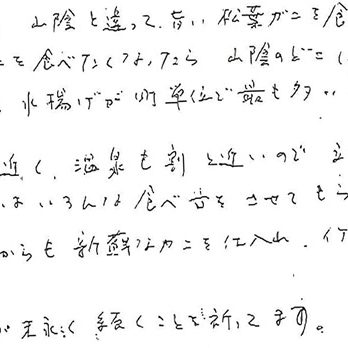 山陰と違って、甘い松葉がニを食
ニを食べたくなったら 山陰のどこ
水揚げが町単位で最も多い
近く、温泉も割と近いので 立
はいろんな食べ方をさせてもら
からも新鮮なカニを仕入れ、
が末永く続くことを祈ってます。